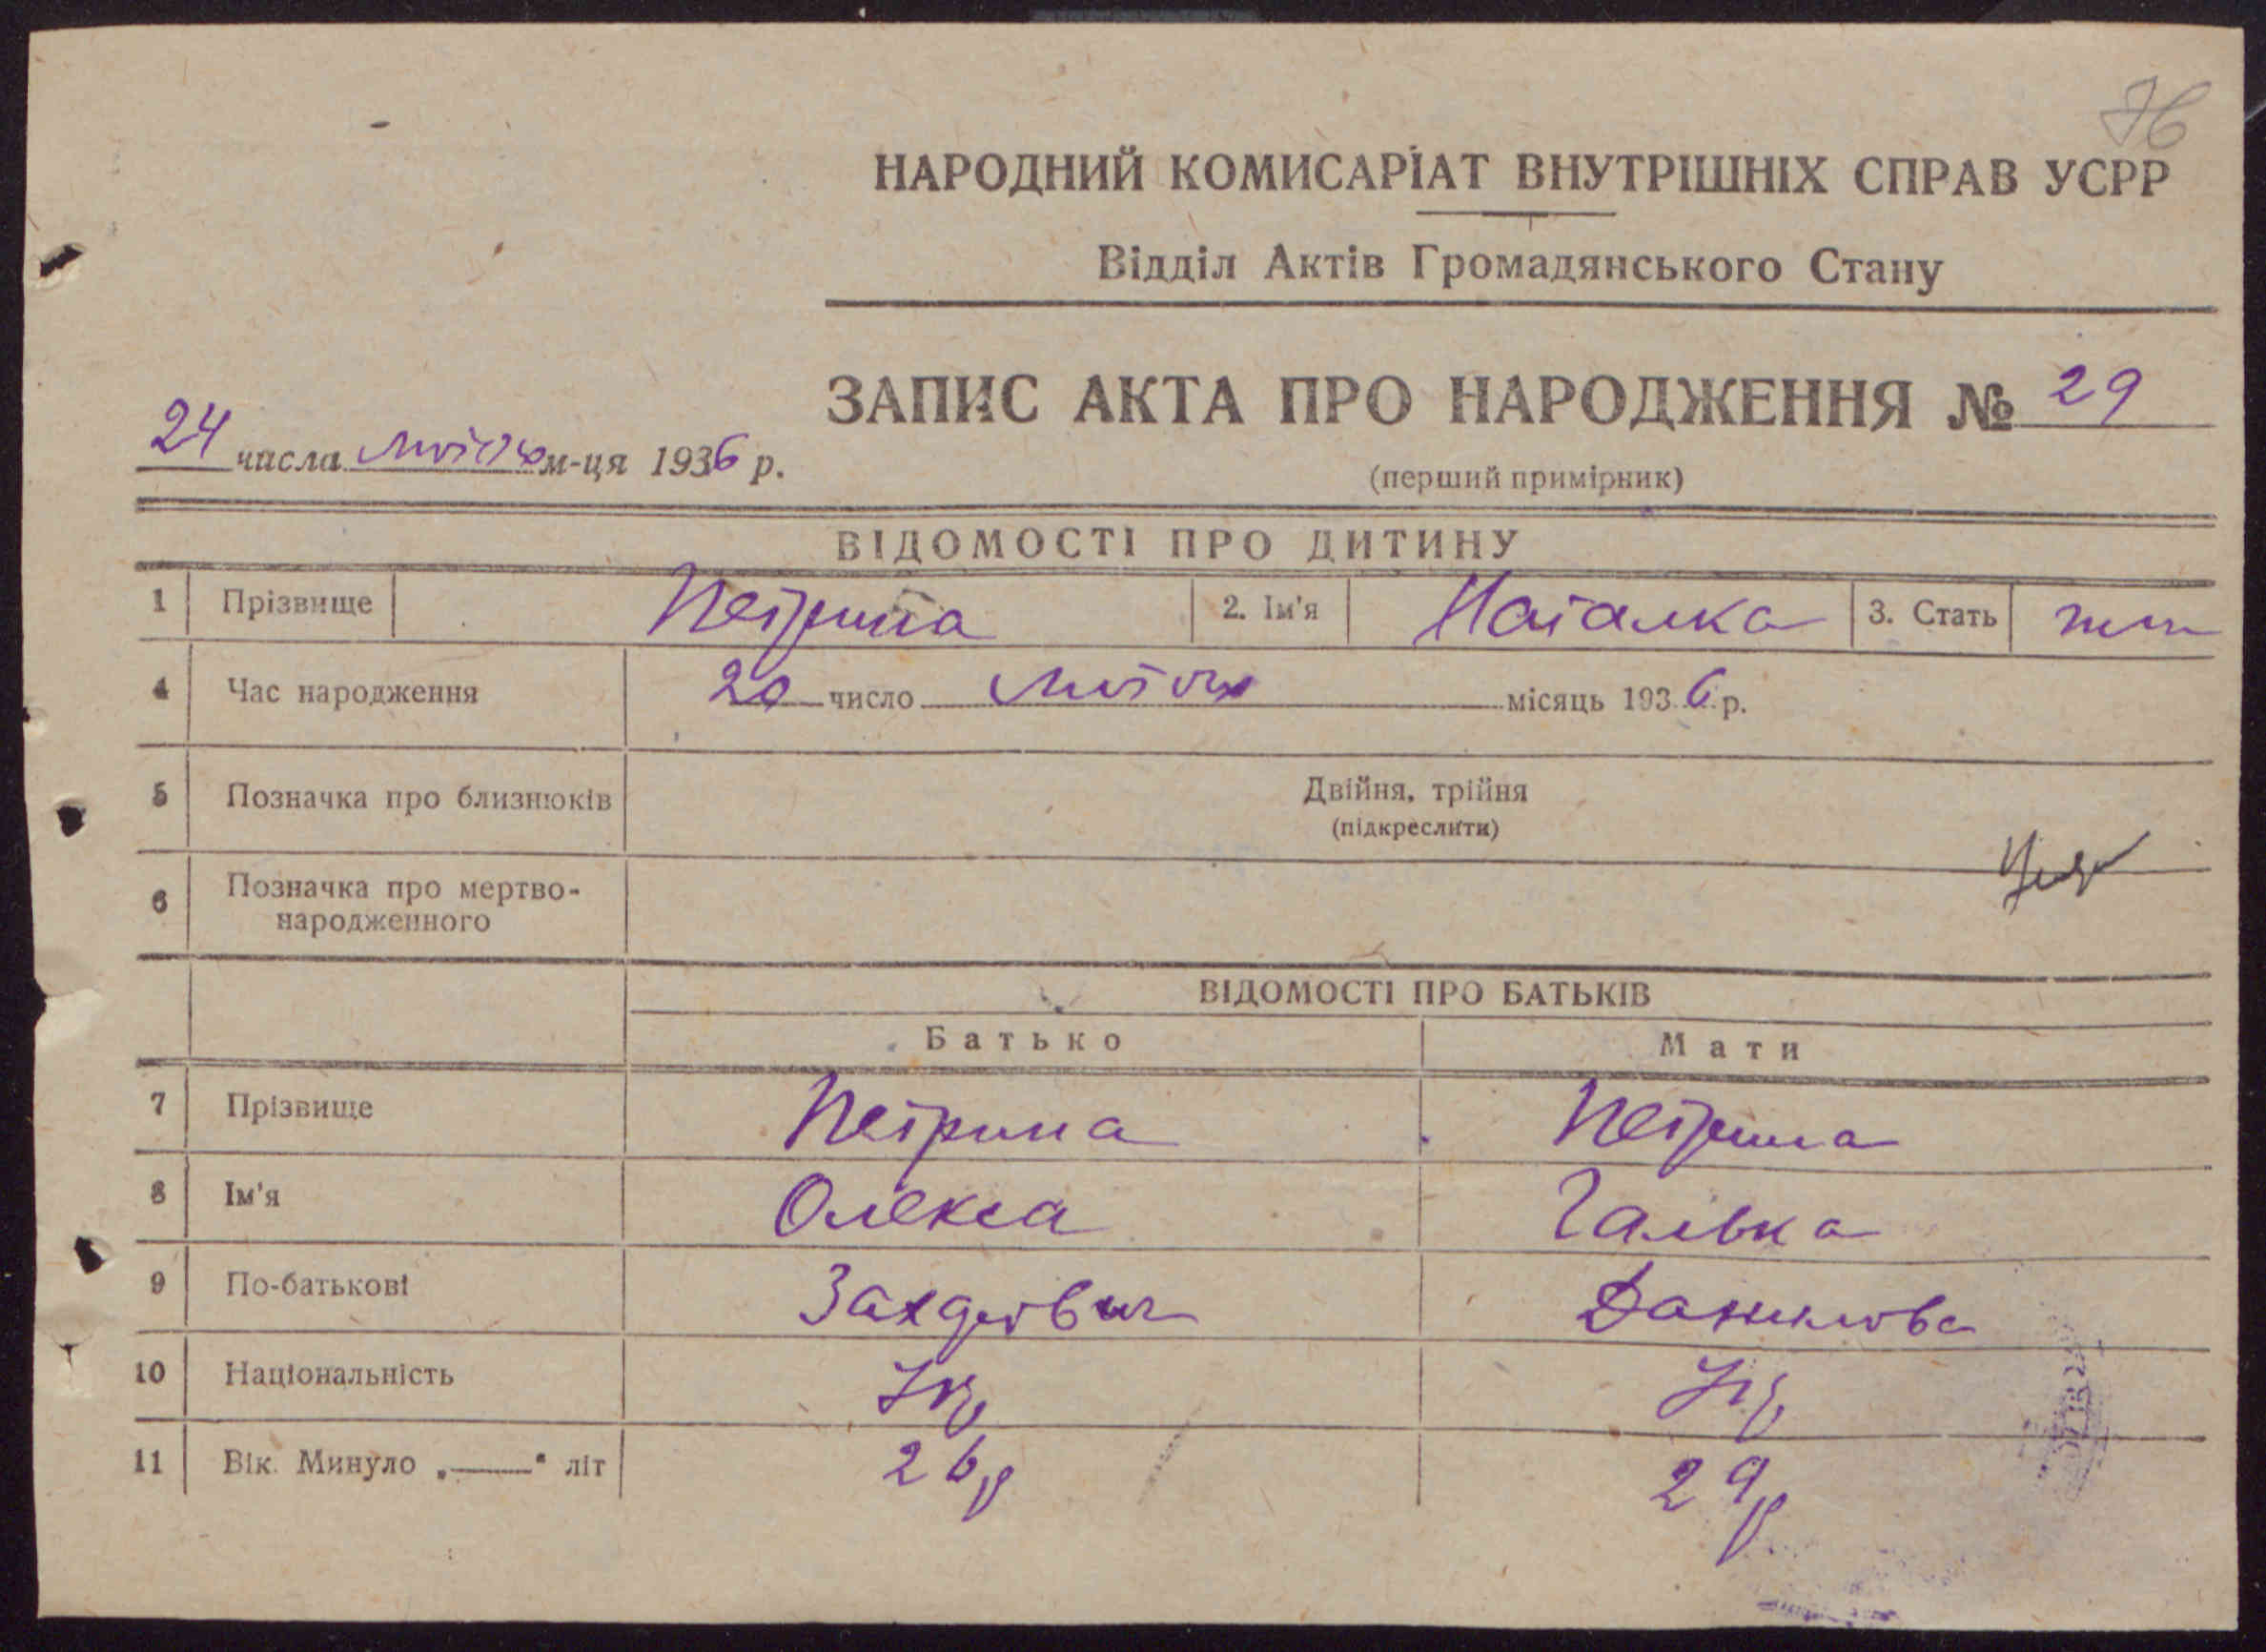 76
НАРОДНИЙ КОМИСАРІАТ ВНУТРІШНІХ СПРАВ УСРР
Відділ Актів Громадянського Стану
ЗАПИС АКТА ПРО НАРОДЖЕННЯ № 29
24 числа лютого м-ця 1936 р.
(перший примірник)
ВІДОМОСТІ ПРО ДИТИНУ
1 Прізвище Петрина 2. Ім'я Наталка 3. Стать жін
4 Час народження 20 число лютого місяць 1936 р.
5 Позначка про близнюків Двійня, трійня
(підкреслити)
6 Позначка про мертво-
народженного
ВІДОМОСТІ ПРО БАТЬКІВ
Батько Мати
7 Прізвище Петрина Петрина
8 Ім'я Олекса Галька
9 По-батькові Захарович Данилова
10 Національність Укр Укр
11 Вік. Минуло „——" літ 26р 29р